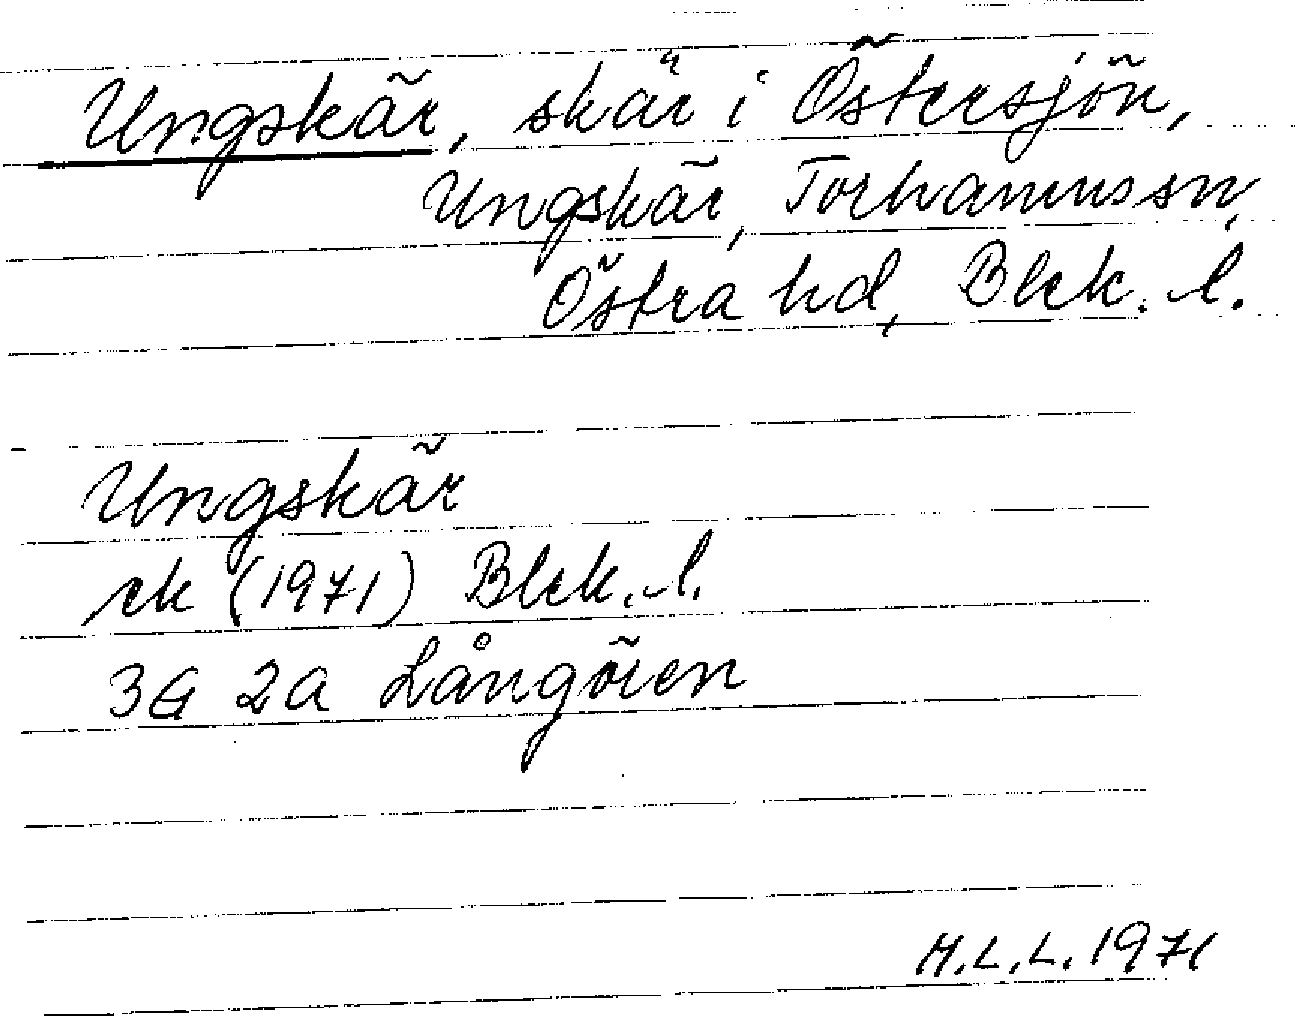 Ungskär, skär i Östersjön,
Ungskär, Torhamns sn,
Östra hd, Blek. l.
Ungskär
ek (1971) Blek. l.
3G 2a Långören
H.L.L. 1971